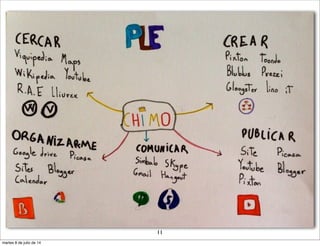 PLE
CERCAR
Viquipedia Maps
Wikipedia Youtube
R.A.E Lliurex
W V
CREAR
Pixton Toondo
Blubbr Prezi
Glogster lino iT
CHIMO
ORGANIZARME
Google drive Picasa
Sites Blogger
Calendar
COMUNICAR
Simbalo SKype
Gmail Hangout
PUBLICAR
Site Picasa
Youtube Blogger
Pixton
11
martes 8 de julio de 14